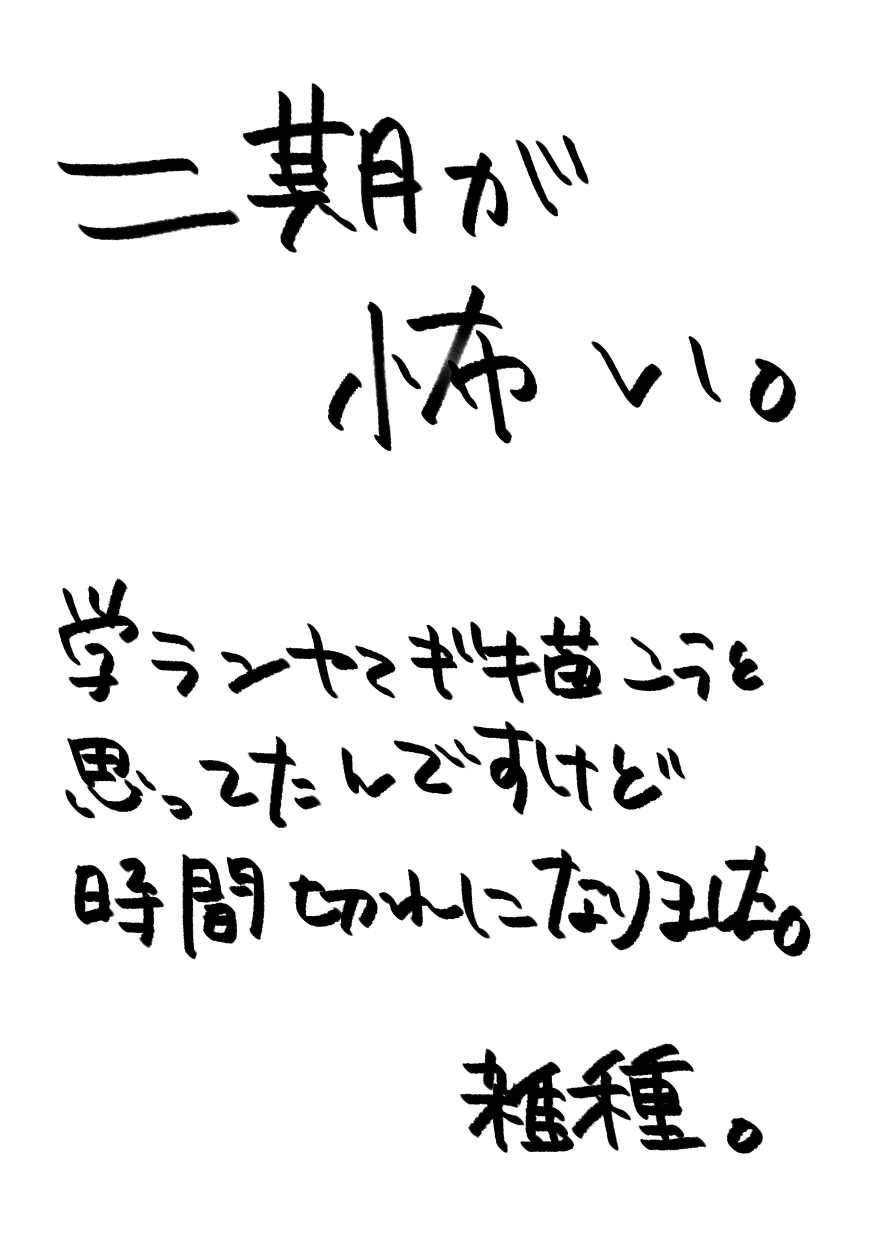 二期が
怖い。
学ランヤてギキ描こうと
思ってたんですけど
時間切れになりました。
雑種。